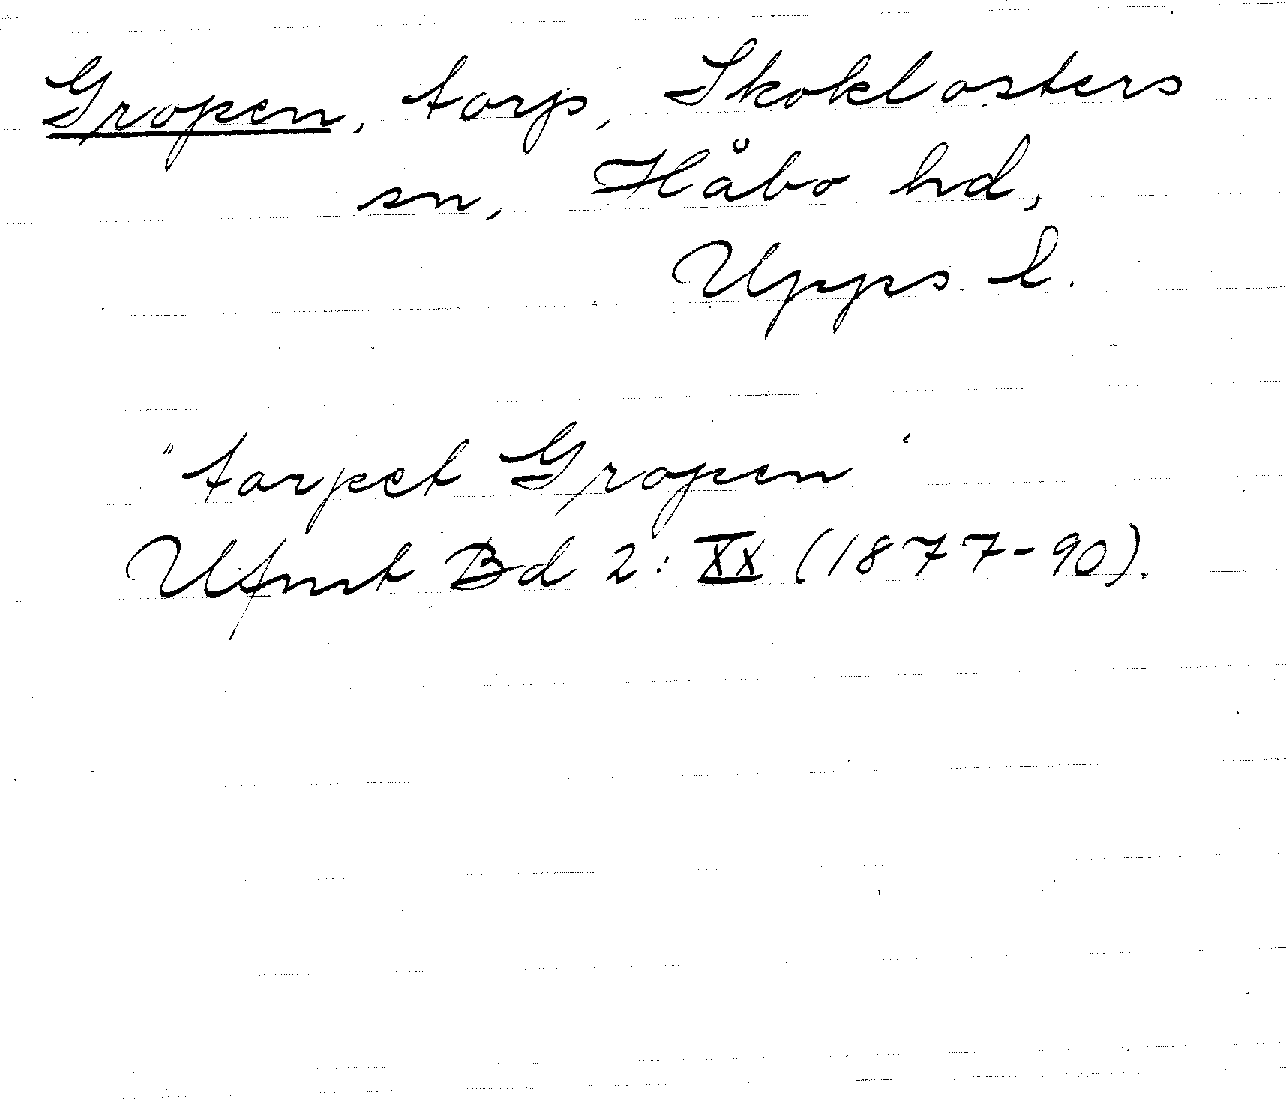 Gropen, torp, Skoklosters
sn, Håbo hd,
Upps l.
"torpet Gropen"
Ufmt Bd 2: XX (1877-90).